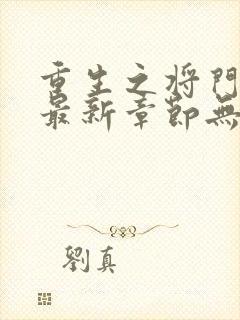 重生之将門
最新章節無
劉真